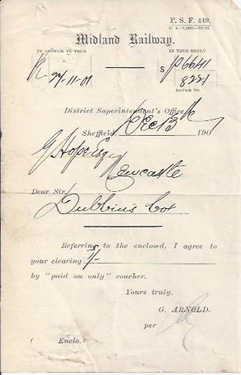 P. S. F. 449.
Midland Railway.
IN ANSWER TO YOUR
IN YOUR REPLY
27-11-01
P6641
8221
District Superintendent's Office,
Sheffield, Dec 13th 1901
G Hope Esq
Newcastle
Dear Sir,
Dubbin's Cot
Referring to the enclosed, I agree to
your clearing 5/-
by "paid on only" voucher.
Yours truly,
G. ARNOLD.
per
( Enclo.)